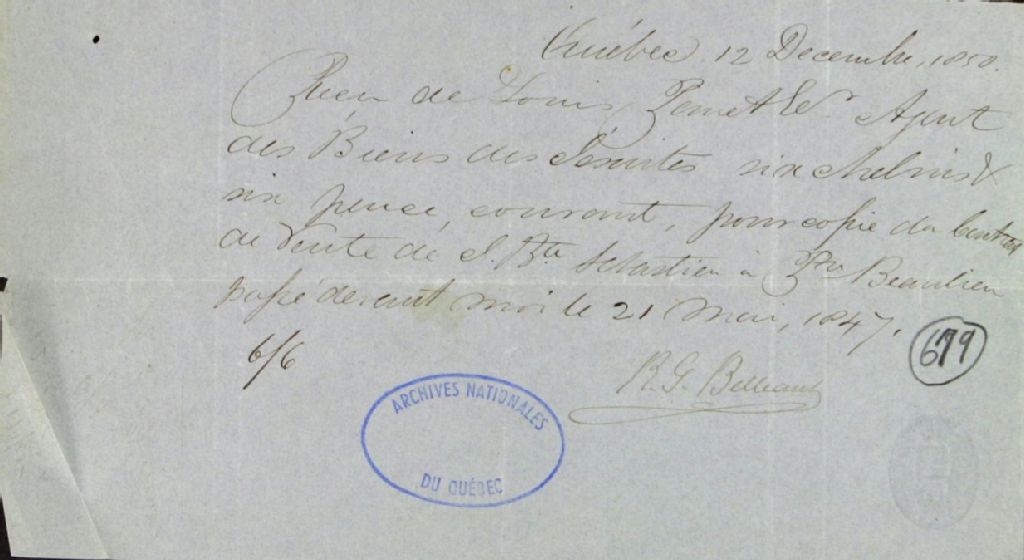 Québec. 12 Decembre, 1850.
Reçu de Louis Panet Ecr Agent
des Biens des Jesuites six chelins &
six pence, courant, pour copie du Contrat
de Vente de J. Bte Sebastien à Beaulieu
passé devant moi le 21 Mai, 1847.
6/6
R. G. Belleau
679
ARCHIVES NATIONALES
DU QUÉBEC